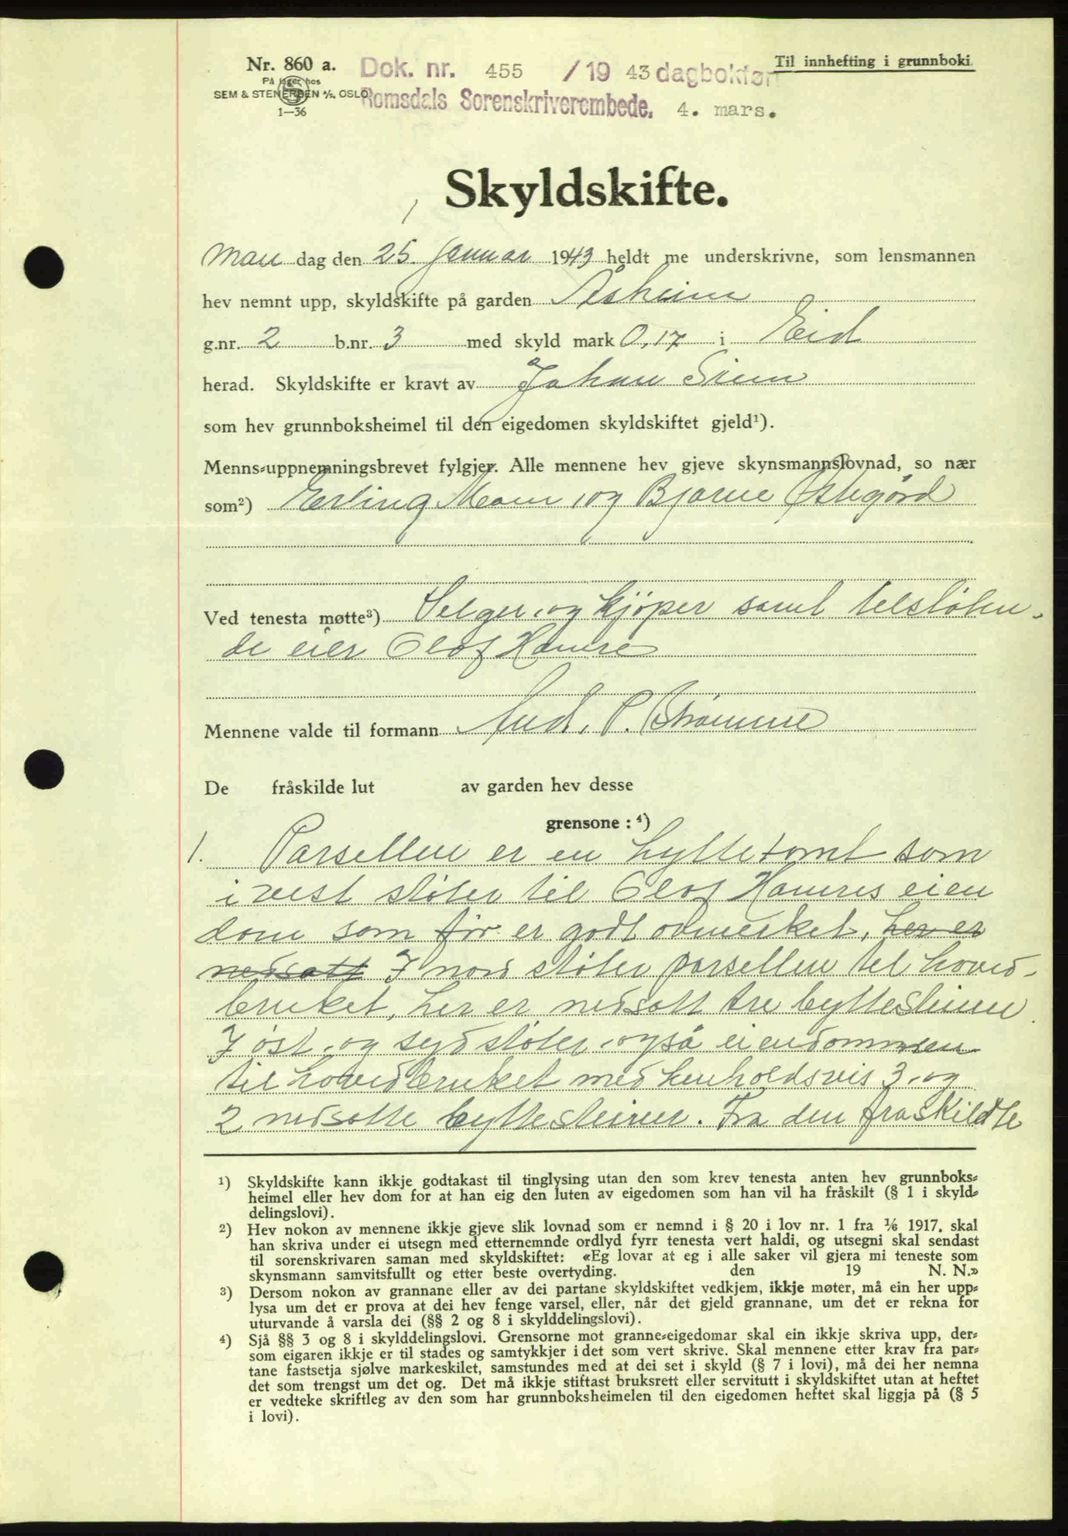 Nr. 860 a.
På lager hos
SEM & STENERSEN A/S, OSLO
1—36
Dok. nr. 455 /19 43 dagbokfør
Romsdals Sorenskriverembede, 4. mars.
Til innhefting i grunnboki
Skyldskifte.
Man dag den 25. januar 1943 heldt me underskrivne, som lensmannen
hev nemnt upp, skyldskifte på garden Åsheim
g.nr. 2 b.nr. 3 med skyld mark 0,17 i Eid
herad. Skyldskifte er kravt av Johan
som hev grunnboksheimel til den eigedomen skyldskiftet gjeld¹).
Menns-uppnemningsbrevet fylgjer. Alle mennene hev gjeve skynsmannslovnad, so nær
som²) Erling og Bjarne
Ved tenesta møtte³) Selger og kjøper samt tilstøten-
de eier Olof Hamre
Mennene valde til formann And. P. Strømme
De fråskilde lut av garden hev desse
grensone : ⁴)
1. Parsellen er en hyttetomt som
i vest støter til Olof Hamres eien
dom som før er godt avmerket, her er
nedsatt I nord støter parsellen til hoved-
bruket, her er nedsatt tre byttesteiner.
I øst og syd støter også eiendommen
til hovedbruket med henholdsvis 3 og
2 nedsatte byttesteiner. Fra den fraskildte
¹) Skyldskifte kann ikkje godtakast til tinglysing utan den som krev tenesta anten hev grunnboks-
heimel eller hev dom for at han eig den luten av eigedomen som han vil ha fråskilt (§ 1 i skyld-
delingslovi).
²) Hev nokon av mennene ikkje gjeve slik lovnad som er nemnd i § 20 i lov nr. 1 fra 1/6 1917, skal
han skriva under ei utsegn med etternemnde ordlyd fyrr tenesta vert haldi, og utsegni skal sendast
til sorenskrivaren saman med skyldskiftet: «Eg lovar at eg i alle saker vil gjera mi teneste som
skynsmann samvitsfullt og etter beste overtyding. den 19 N. N.»
³) Dersom nokon av grannane eller av dei partane skyldskiftet vedkjem, ikkje møter, må ein her upp-
lysa um det er prova at dei hev fenge varsel, eller, når det gjeld grannane, um det er rekna for
uturvande å varsla dei (§§ 2 og 8 i skylddelingslovi).
⁴) Sjå §§ 3 og 8 i skylddelingslovi. Grensorne mot granne-eigedomar skal ein ikkje skriva upp, der-
som eigaren ikkje er til stades og samtykkjer i det som vert skrive. Skal mennene etter krav fra par-
tane fastsetja sjølve markeskilet, samstundes med at dei set i skyld (§ 7 i lovi), må dei her nemna
det som trengst um det og. Det må ikkje stiftast bruksrett eller servitutt i skyldskiftet utan at heftet
er vedteke skriftleg av den som har grunnboksheimelen til den eigedomen heftet skal liggja på (§ 5
i lovi).